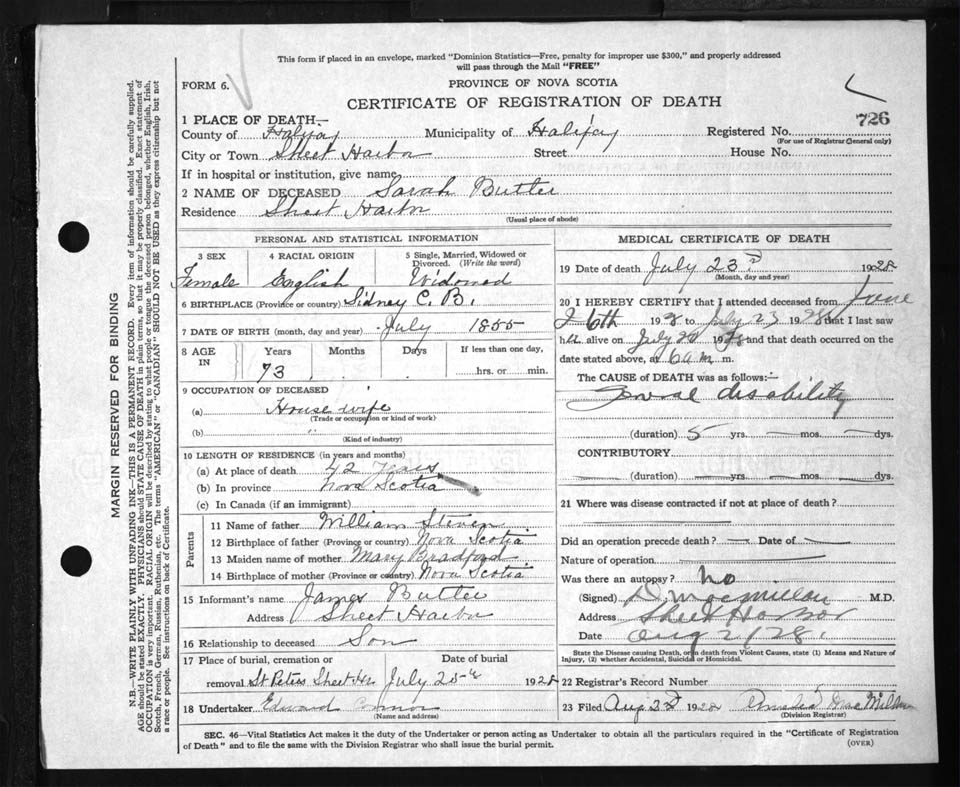 This form if placed in an envelope, marked "Dominion Statistics—Free, penalty for improper use $300," and properly addressed
will pass through the Mail "FREE"
FORM 6.
PROVINCE OF NOVA SCOTIA
CERTIFICATE OF REGISTRATION OF DEATH
1 PLACE OF DEATH—
726
County of Halifax Municipality of Halifax Registered No.
(For use of Registrar General only)
City or Town Sheet Harbor Street House No.
If in hospital or institution, give name
2 NAME OF DECEASED Sarah Butler
Residence Sheet Harbor
(Usual place of abode)
PERSONAL AND STATISTICAL INFORMATION
3 SEX 4 RACIAL ORIGIN 5 Single, Married, Widowed or
Divorced. (Write the word)
Female English Widowed
6 BIRTHPLACE (Province or country) Sidney C. B.
7 DATE OF BIRTH (month, day and year) July 1855
8 AGE IN Years Months Days If less than one day,
73 hrs. or min.
9 OCCUPATION OF DECEASED
(a) House wife
(Trade or occupation or kind of work)
(b) "
(Kind of industry)
10 LENGTH OF RESIDENCE (in years and months)
(a) At place of death 42 years
(b) In province Nova Scotia
(c) In Canada (if an immigrant)
Parents
11 Name of father William Steven
12 Birthplace of father (Province or country) Nova Scotia
13 Maiden name of mother Mary Bradford
14 Birthplace of mother (Province or country) Nova Scotia
15 Informant's name James Butler
Address Sheet Harbor
16 Relationship to deceased Son
17 Place of burial, cremation or Date of burial
removal St Peters Sheet Hr. July 25th 1928
18 Undertaker Edward
(Name and address)
MEDICAL CERTIFICATE OF DEATH
19 Date of death July 23rd 1928
(Month, day and year)
20 I HEREBY CERTIFY that I attended deceased from June
26th 1928 to July 23 1928 that I last saw
her alive on July 20 1928 and that death occurred on the
date stated above, at 6 am m.
The CAUSE OF DEATH was as follows:—
disability
(duration) 5 yrs. mos. dys.
CONTRIBUTORY
(duration) yrs. mos. dys.
21 Where was disease contracted if not at place of death?
Did an operation precede death? — Date of —
Nature of operation
Was there an autopsy? no
(Signed) D. Macmillan M.D.
Address Sheet Harbor
Date Aug 2/28
State the Disease causing Death, or in death from Violent Causes, state (1) Means and Nature of
Injury, (2) whether Accidental, Suicidal or Homicidal.
22 Registrar's Record Number
23 Filed Aug 2d 1928 MacMillan
(Division Registrar)
SEC. 46—Vital Statistics Act makes it the duty of the Undertaker or person acting as Undertaker to obtain all the particulars required in the "Certificate of Registration
of Death" and to file the same with the Division Registrar who shall issue the burial permit.
(OVER)
MARGIN RESERVED FOR BINDING
N.B.—WRITE PLAINLY WITH UNFADING INK—THIS IS A PERMANENT RECORD. Every item of information should be carefully supplied.
AGE should be stated EXACTLY. PHYSICIANS should STATE CAUSE OF DEATH in plain terms, so that it may be properly classified. Exact statement of
OCCUPATION is very important. RACIAL ORIGIN will be described by stating to what people or tongue the deceased person belonged, whether English, Irish,
Scotch, French, German, Russian, Ruthenian, etc. The terms "AMERICAN" or "CANADIAN" SHOULD NOT BE USED as they express citizenship but not
a race or people. See instructions on back of Certificate.